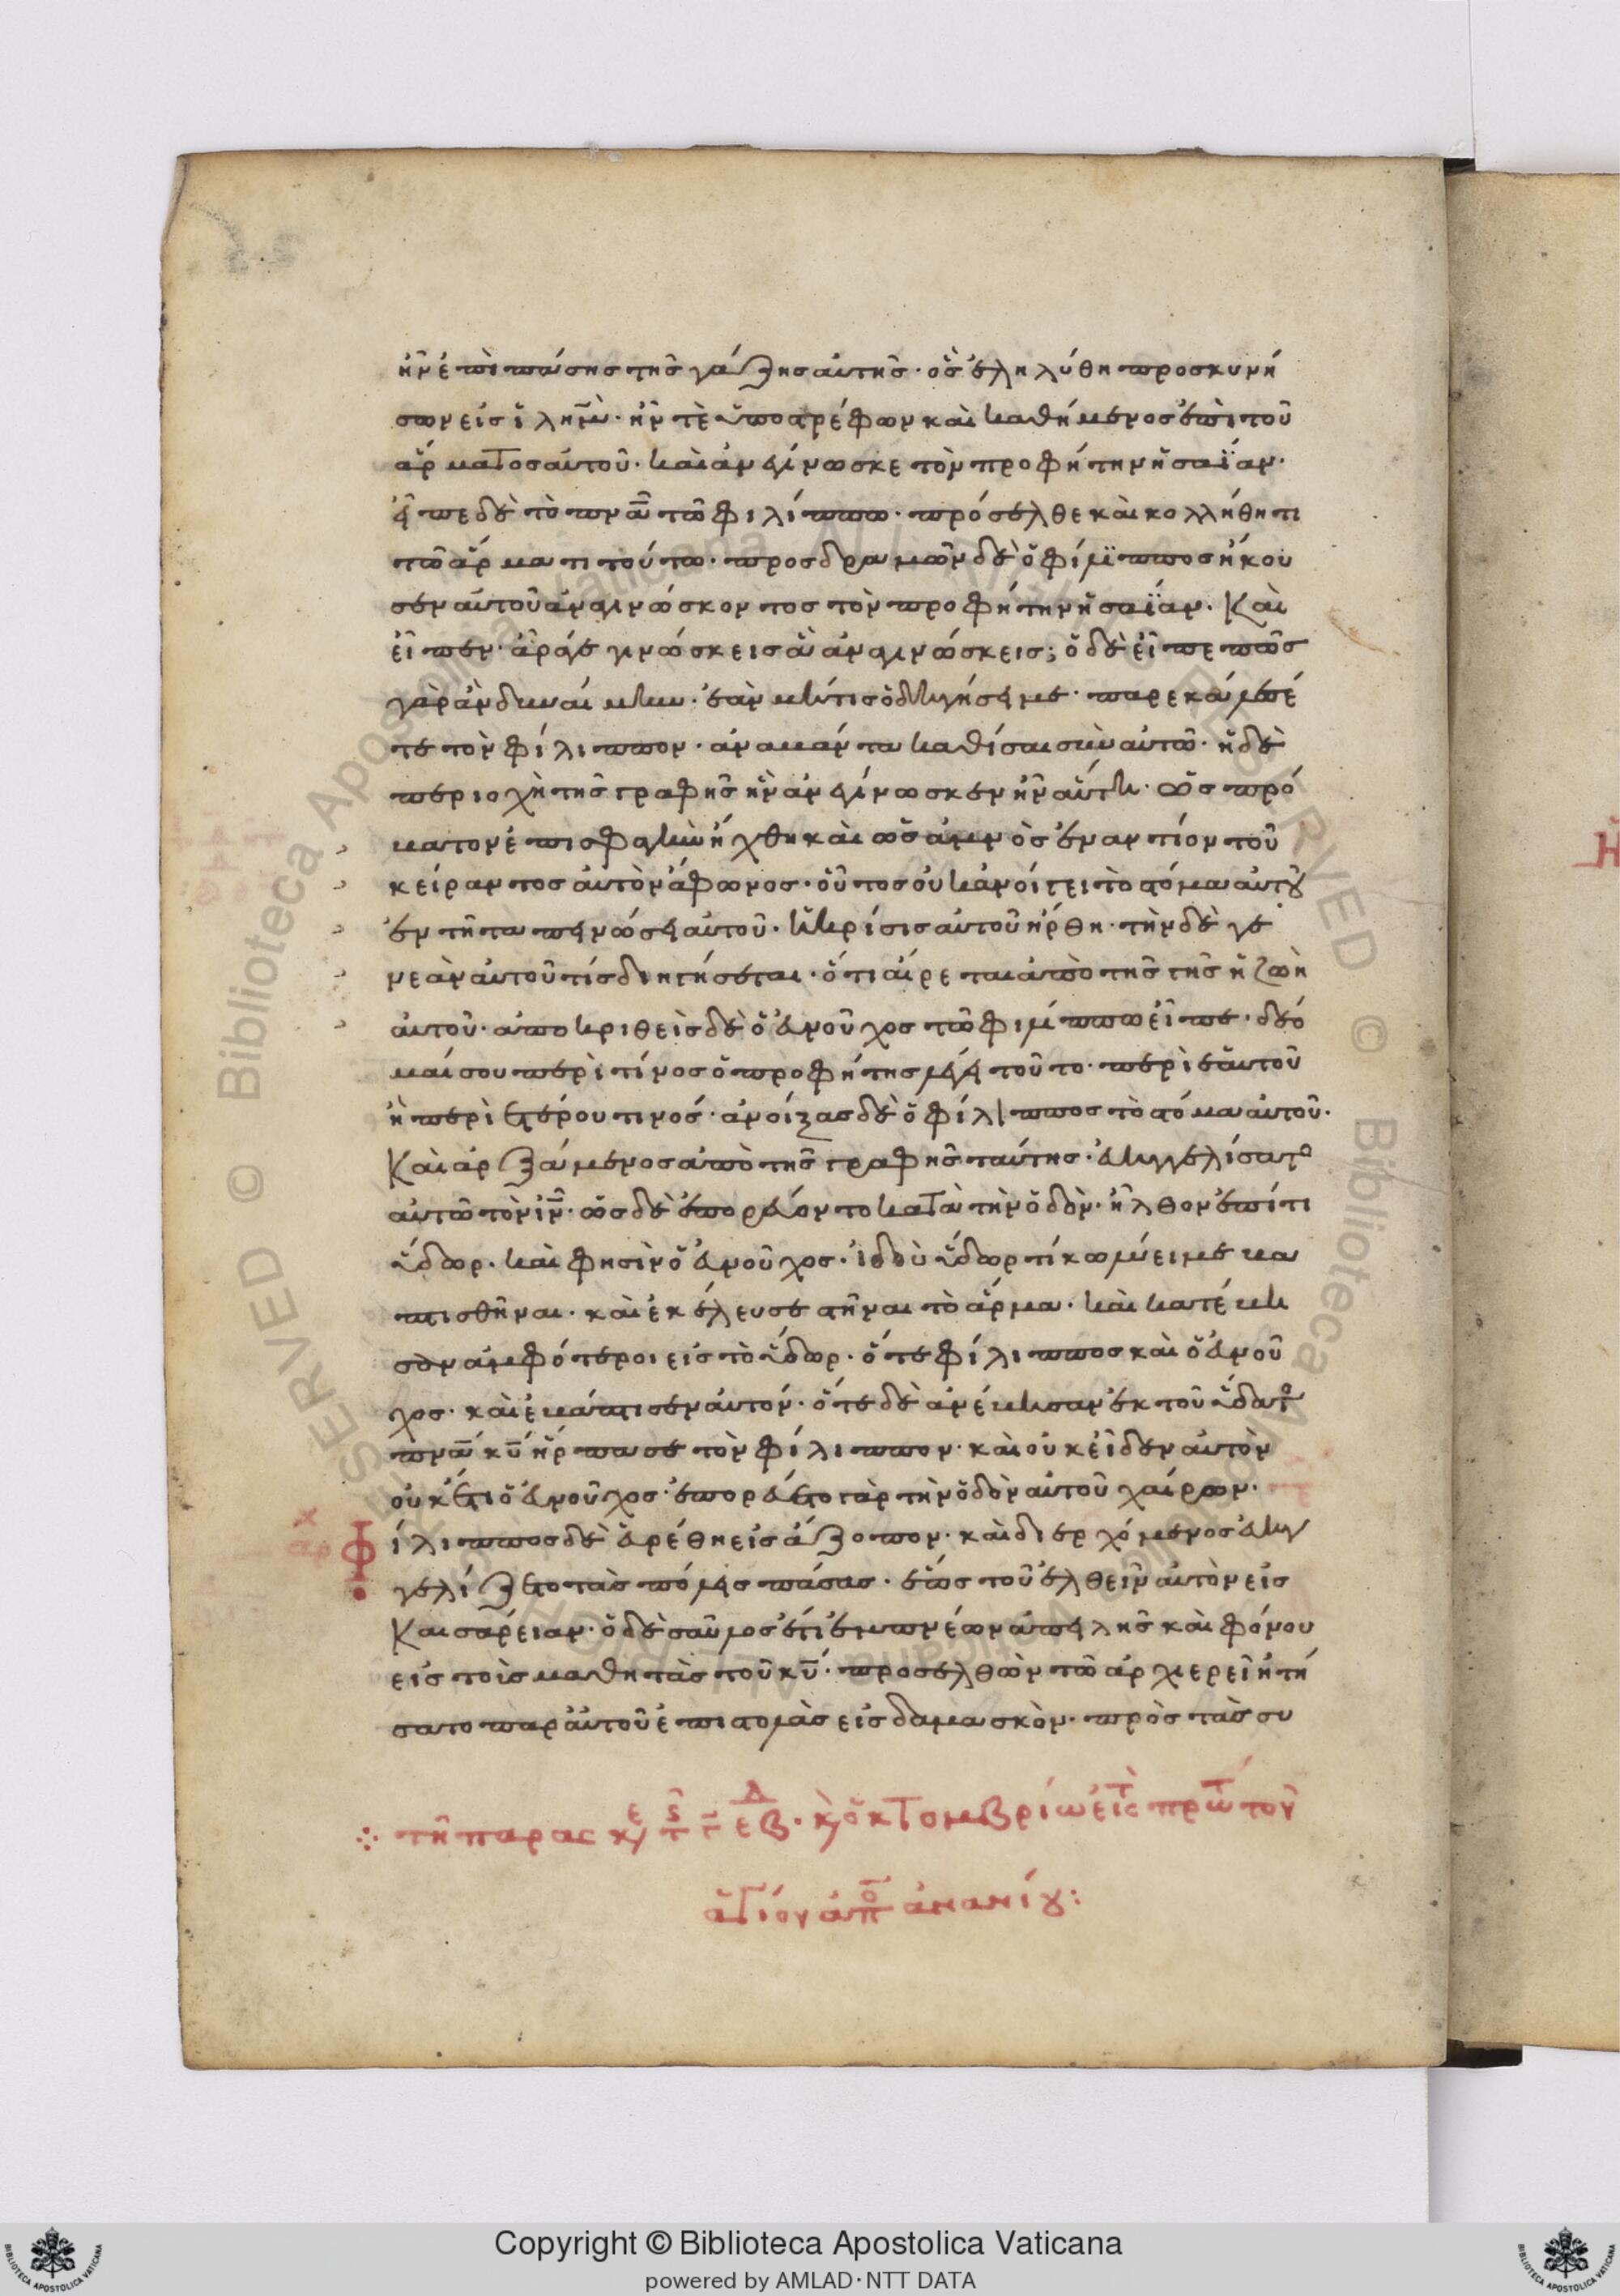 ἦν ἐπὶ πάσης τῆς γάζης αὐτῆς· ὃς ἐληλύθη προσκυνή
σων εἰς ἰλημ̅· ἦν τὲ ὑποστρέφων καὶ καθήμενος ἐπὶ τοῦ
ἅρματος αὐτοῦ· καὶ ἀνεγίνωσκε τὸν προφήτην ἡσαΐαν·
εἶπε δὲ τὸ πνα̅ τῶ φιλίππω· πρόσελθε καὶ κολλήθητι
τῶ ἅρματι τούτω· προσδραμὼν δὲ ὁ φίλιππος ἤκου
σεν αὐτοῦ ἀναγινώσκοντος τὸν προφήτην ἡσαΐαν. Καὶ
εἶπεν· ἆρά γε γινώσκεις ἃ ἀναγινώσκεις; ὁ δὲ εἶπε πῶς
γὰρ ἂν δυναίμην· ἐὰν μήτις ὁδηγήσει με· παρεκάλεσέ
τε τὸν φίλιππον· ἀναβάντα καθίσαι σὺν αὐτῶ· ἡ δὲ
περιοχὴ τῆς γραφῆς ἣν ἀνεγίνωσκεν ἦν αὕτη· ὡς πρό
βατον ἐπὶ σφαγὴν ἤχθη καὶ ὡς ἀμνὸς ἐναντίον τοῦ
κείραντος αὐτὸν ἄφωνος· οὕτος οὐκ ἀνοίγει τὸ στόμα αὐτοῦ
ἐν τῆ ταπεινώσει αὐτοῦ· ἡ κρίσις αὐτοῦ ἤρθη· τὴν δὲ γε
νεὰν αὐτοῦ τίς διηγήσεται· ὅτι αἴρεται ἀπὸ τῆς γῆς ἡ ζωὴ
αὐτοῦ· ἀποκριθεὶς δὲ ὁ εὐνοῦχος τῶ φιλίππω εἶπε· δέο
μαί σου περὶ τίνος ὁ προφήτης λέγει τοῦτο· περὶ ἑαυτοῦ
ἢ περὶ ἑτέρου τινός· ἀνοίξας δὲ ὁ φίλιππος τὸ στόμα αὐτοῦ·
Καὶ ἀρξάμενος ἀπὸ τῆς γραφῆς ταύτης· εὐηγγελίσατο
αὐτῶ τὸν ιν̅· ὡς δὲ ἐπορεύοντο κατὰ τὴν ὁδὸν· ἦλθον ἐπί τι
ὕδωρ· καὶ φησὶν ὁ εὐνοῦχος· ἰδοὺ ὕδωρ τί κωλύει με βα
πτισθῆναι· καὶ ἐκέλευσε στῆναι τὸ ἅρμα· καὶ κατέβη
σαν ἀμφότεροι εἰς τὸ ὕδωρ· ὅ τε φίλιππος καὶ ὁ εὐνοῦ
χος· καὶ ἐβάπτισεν αὐτόν· ὅτε δὲ ἀνέβησαν ἐκ τοῦ ὕδατος
πνα̅ κυ̅ ἥρπασε τὸν φίλιππον· καὶ οὐκ εἶδεν αὐτὸν
οὐκέτι ὁ εὐνοῦχος· ἐπορεύετο γὰρ τὴν ὁδὸν αὐτοῦ χαίρων·
Φίλιππος δὲ εὑρέθη εἰς ἄζοτον· καὶ διερχόμενος εὐηγ
γελίζετο τὰς πόλεις πάσας· ἕως τοῦ ἐλθεῖν αὐτὸν εἰς
Καισάρειαν· ὁ δὲ σαῦλος ἔτι ἐμπνέων ἀπειλῆς καὶ φόνου
εἰς τοὺς μαθητὰς τοῦ κυ̅· προσελθὼν τῶ ἀρχιερεῖ ἠτή
σατο παρ' αὐτοῦ ἐπιστολὰς εἰς δαμασκὸν· πρὸς τὰς συ
τῆ παρασκε
ὀκτομβρίω εἰς τ πρώτου
ἁγίου ἀπο ἀνανίου:
Copyright © Biblioteca Apostolica Vaticana
powered by AMLAD·NTT DATA